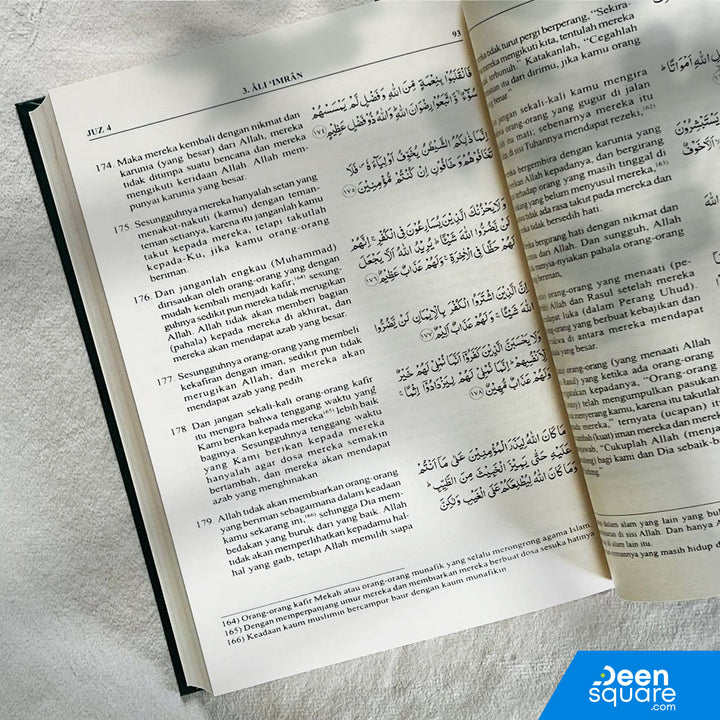 JUZ 4
3. ÂLI ‘IMRÂN
93
174. Maka mereka kembali dengan nikmat dan
karunia (yang besar) dari Allah, mereka
tidak ditimpa suatu bencana dan mereka
mengikuti keridaan Allah. Allah mem-
punyai karunia yang besar.
175. Sesungguhnya mereka hanyalah setan yang
menakut-nakuti (kamu) dengan teman-
teman setianya, karena itu janganlah kamu
takut kepada mereka, tetapi takutlah
kepada-Ku, jika kamu orang-orang
beriman.
176. Dan janganlah engkau (Muhammad)
dirisaukan oleh orang-orang yang dengan
mudah kembali menjadi kafir;164) sesung-
guhnya sedikit pun mereka tidak merugikan
Allah. Allah tidak akan memberi bagian
(pahala) kepada mereka di akhirat, dan
mereka akan mendapat azab yang besar.
177. Sesungguhnya orang-orang yang membeli
kekafiran dengan iman, sedikit pun tidak
merugikan Allah; dan mereka akan
mendapat azab yang pedih.
178 Dan jangan sekali-kali orang-orang kafir
itu mengira bahwa tenggang waktu yang
Kami berikan kepada mereka165) lebih baik
baginya. Sesungguhnya tenggang waktu
yang Kami berikan kepada mereka
hanyalah agar dosa mereka semakin
bertambah, dan mereka akan mendapat
azab yang menghinakan.
179 Allah tidak akan membiarkan orang-orang
yang beriman sebagaimana dalam keadaan
kamu sekarang ini,166) sehingga Dia mem-
bedakan yang buruk dari yang baik. Allah
tidak akan memperlihatkan kepadamu hal-
hal yang gaib, tetapi Allah memilih siapa
فَانْقَلَبُوْا بِنِعْمَةٍ مِّنَ اللّٰهِ وَفَضْلٍ لَّمْ يَمْسَسْهُمْ
سُوْۤءٌۙ وَّاتَّبَعُوْا رِضْوَانَ اللّٰهِ ۗ وَاللّٰهُ ذُوْ فَضْلٍ عَظِيْمٍ ١٧٤
اِنَّمَا ذٰلِكُمُ الشَّيْطٰنُ يُخَوِّفُ اَوْلِيَاۤءَهٗۖ فَلَا
تَخَافُوْهُمْ وَخَافُوْنِ اِنْ كُنْتُمْ مُّؤْمِنِيْنَ ١٧٥
وَلَا يَحْزُنْكَ الَّذِيْنَ يُسَارِعُوْنَ فِى الْكُفْرِۚ اِنَّهُمْ
لَنْ يَّضُرُّوا اللّٰهَ شَيْـًٔا ۗ يُرِيْدُ اللّٰهُ اَلَّا يَجْعَلَ
لَهُمْ حَظًّا فِى الْاٰخِرَةِ ۚ وَلَهُمْ عَذَابٌ عَظِيْمٌ ١٧٦
اِنَّ الَّذِيْنَ اشْتَرَوُا الْكُفْرَ بِالْاِيْمَانِ لَنْ يَّضُرُّوا
اللّٰهَ شَيْـًٔاۚ وَلَهُمْ عَذَابٌ اَلِيْمٌ ١٧٧
وَلَا يَحْسَبَنَّ الَّذِيْنَ كَفَرُوْٓا اَنَّمَا نُمْلِيْ لَهُمْ خَيْرٌ
لِّاَنْفُسِهِمْ ۗ اِنَّمَا نُمْلِيْ لَهُمْ لِيَزْدَادُوْٓا اِثْمًا ۚ
وَلَهُمْ عَذَابٌ مُّهِيْنٌ ١٧٨
مَا كَانَ اللّٰهُ لِيَذَرَ الْمُؤْمِنِيْنَ عَلٰى مَآ اَنْتُمْ
عَلَيْهِ حَتّٰى يَمِيْزَ الْخَبِيْثَ مِنَ الطَّيِّبِ ۗ
وَمَا كَانَ اللّٰهُ لِيُطْلِعَكُمْ عَلَى الْغَيْبِ وَلٰكِنَّ
164) Orang-orang kafir Mekah atau orang-orang munafik yang selalu merongrong agama Islam.
165) Dengan memperpanjang umur mereka dan membiarkan mereka berbuat dosa sesuka hatinya
166) Keadaan kaum muslimin bercampur baur dengan kaum munafikin
tidak turut pergi berperang, “Sekira-
mereka mengikuti kita, tentulah mereka
terbunuh.” Katakanlah, “Cegahlah
itu dari dirimu, jika kamu orang
benar.”
jangan sekali-kali kamu mengira
orang-orang yang gugur di jalan
itu mati; sebenarnya mereka itu
di sisi Tuhannya mendapat rezeki,162)
bergembira dengan karunia yang
Allah kepadanya, dan bergirang
terhadap orang yang masih tinggal di
yang belum menyusul mereka,163)
tidak ada rasa takut pada mereka dan
tidak bersedih hati.
bergirang hati dengan nikmat dan
dari Allah. Dan sungguh, Allah
menyia-nyiakan pahala orang-orang
orang-orang yang menaati (pe-
Allah dan Rasul setelah mereka
mendapat luka (dalam Perang Uhud).
orang-orang yang berbuat kebajikan dan
di antara mereka mendapat
yang besar.
orang-orang (yang menaati Allah
Rasul) yang ketika ada orang-orang
mengatakan kepadanya, “Orang-orang
telah mengumpulkan pasukan
menyerang kamu, karena itu takutlah
kepada mereka,” ternyata (ucapan) itu
(kuat) iman mereka dan mereka
menjawab, “Cukuplah Allah (menja-
bagi kami dan Dia sebaik-b
dalam alam yang lain yang bu
di sisi Allah. Dan hanya A
di alam lain itu.
temannya yang masih hidup d
Deen
square
.com